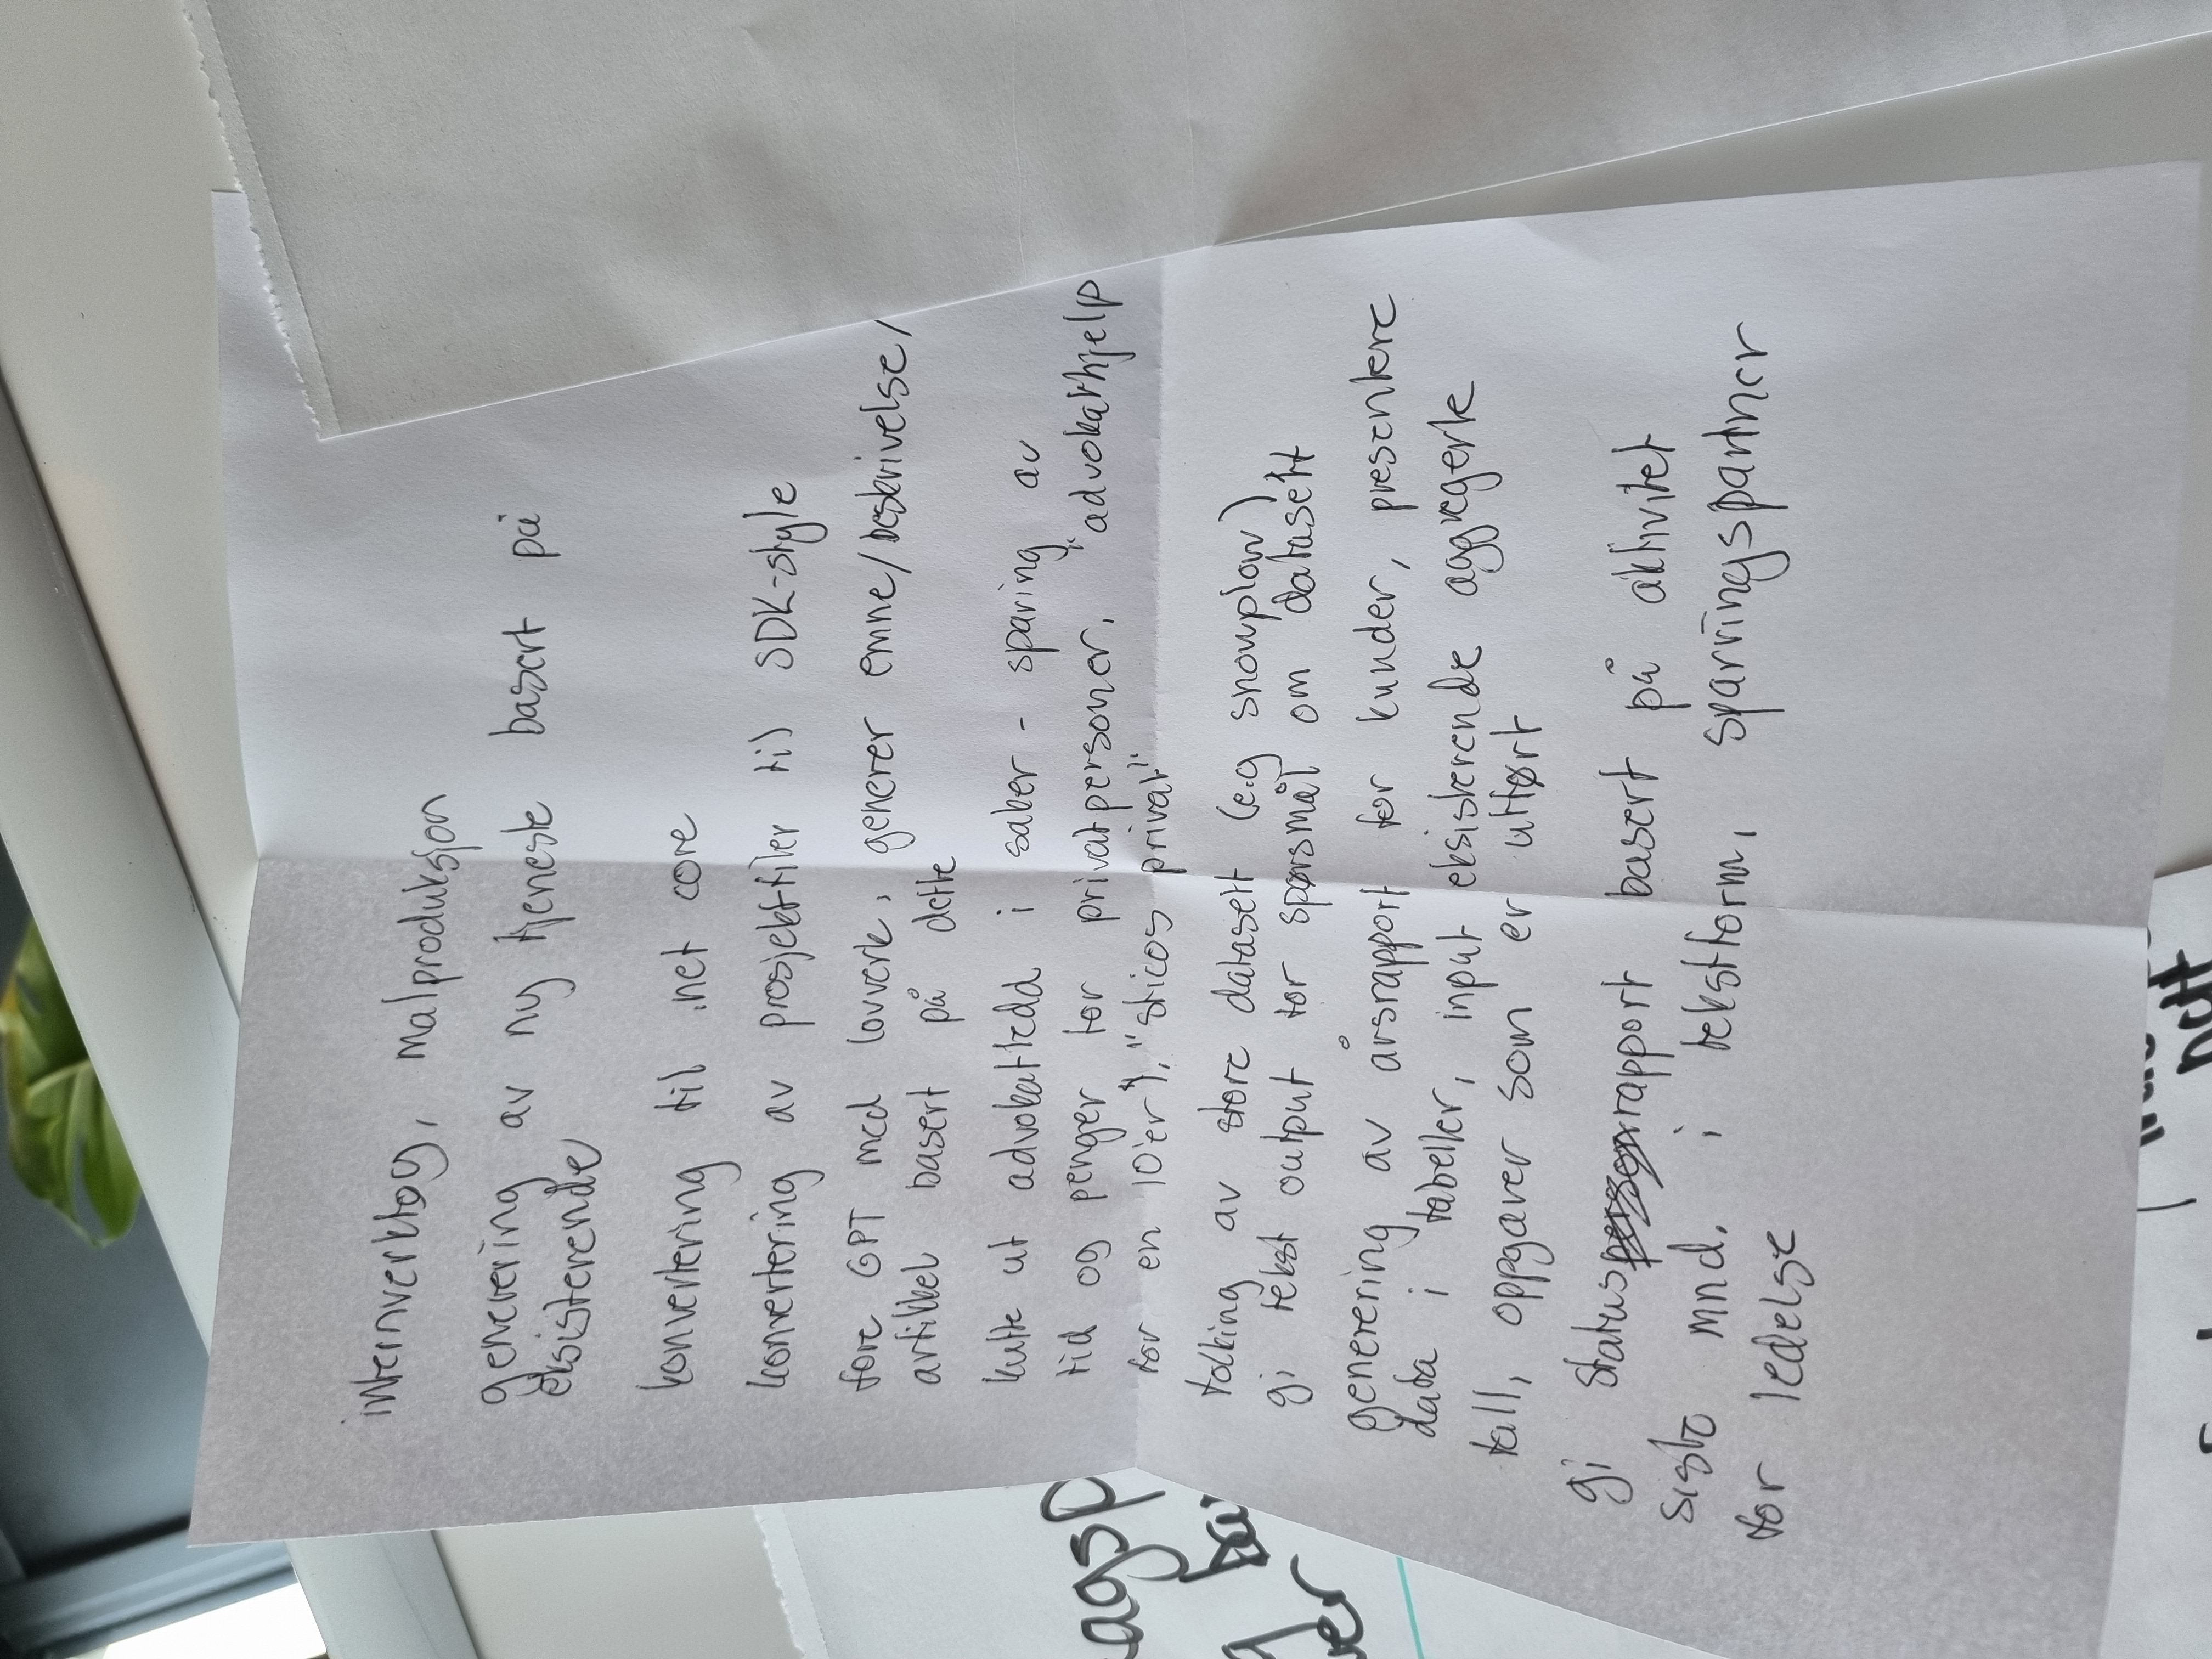 internverktøy, malproduksjon
generering av ny tjeneste basert på
eksisterende
konvertering til .net core
konvertering av prosjektfiler til SDK-style
fore GPT med lovverk, generer emne/beskrivelse/
artikkel basert på dette
kutte ut advokatledd i saker - sparing av
tid og penger for privatpersoner, "advokathjelp
for en 10'er", "sticos privat"
tolking av store datasett (e.g snowplow),
gi tekst output for spørsmål om datasett
generering av årsrapport for kunder, presentere
data i tabeller, input eksisterende aggregerte
tall, oppgaver som er utført
gi statusrapport basert på aktivitet
siste mnd. i tekstform, sparringspartner
for ledelse
agsp
g
ver
nott